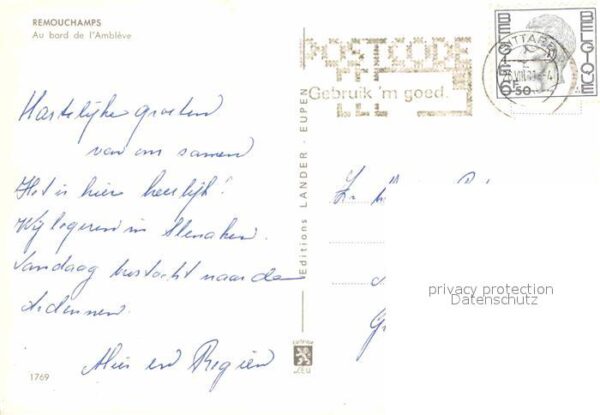 REMOUCHAMPS
Au bord de l'Amblève
POSTCODE
Gebruik 'm goed.
BELGIE BELGIQUE
6F50
SITTARD
Hartelijke groeten
van ons samen
Het is hier heerlijk!
Wij legeren in Slenaken.
Vandaag bustocht naar de
Ardennen.
Mies en
Editions LANDER - EUPEN
privacy protection
Datenschutz
1769